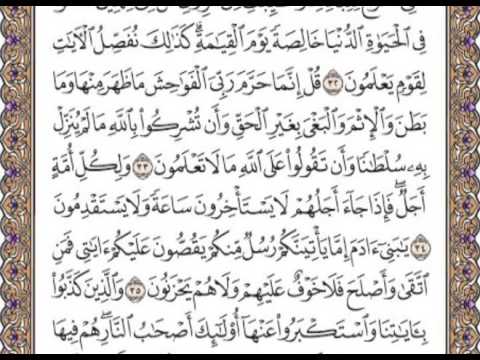 فِي الْحَيَوٰةِ الدُّنْيَا خَالِصَةً يَوْمَ الْقِيَٰمَةِ ۗ كَذَٰلِكَ نُفَصِّلُ الْءَايَٰتِ
لِقَوْمٍ يَعْلَمُونَ ٣٢ قُلْ إِنَّمَا حَرَّمَ رَبِّيَ الْفَوَٰحِشَ مَا ظَهَرَ مِنْهَا وَمَا
بَطَنَ وَالْإِثْمَ وَالْبَغْيَ بِغَيْرِ الْحَقِّ وَأَن تُشْرِكُوا۟ بِاللَّهِ مَا لَمْ يُنَزِّلْ
بِهِۦ سُلْطَٰنًا وَأَن تَقُولُوا۟ عَلَى اللَّهِ مَا لَا تَعْلَمُونَ ٣٣ وَلِكُلِّ أُمَّةٍ
أَجَلٌ ۖ فَإِذَا جَآءَ أَجَلُهُمْ لَا يَسْتَأْخِرُونَ سَاعَةً وَلَا يَسْتَقْدِمُونَ
٣٤ يَٰبَنِىٓ ءَادَمَ إِمَّا يَأْتِيَنَّكُمْ رُسُلٌ مِّنكُمْ يَقُصُّونَ عَلَيْكُمْ ءَايَٰتِى فَمَنِ
اتَّقَىٰ وَأَصْلَحَ فَلَا خَوْفٌ عَلَيْهِمْ وَلَا هُمْ يَحْزَنُونَ ٣٥ وَالَّذِينَ كَذَّبُوا۟
بِـَٔايَٰتِنَا وَاسْتَكْبَرُوا۟ عَنْهَآ أُو۟لَٰٓئِكَ أَصْحَٰبُ النَّارِ ۖ هُمْ فِيهَا